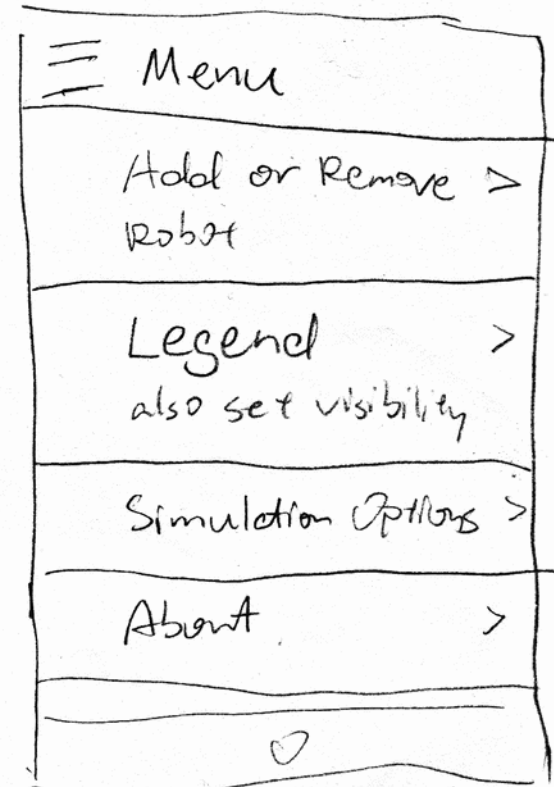 Menu
Add or Remove >
Robot
Legend >
also set visibility
Simulation Options >
About >